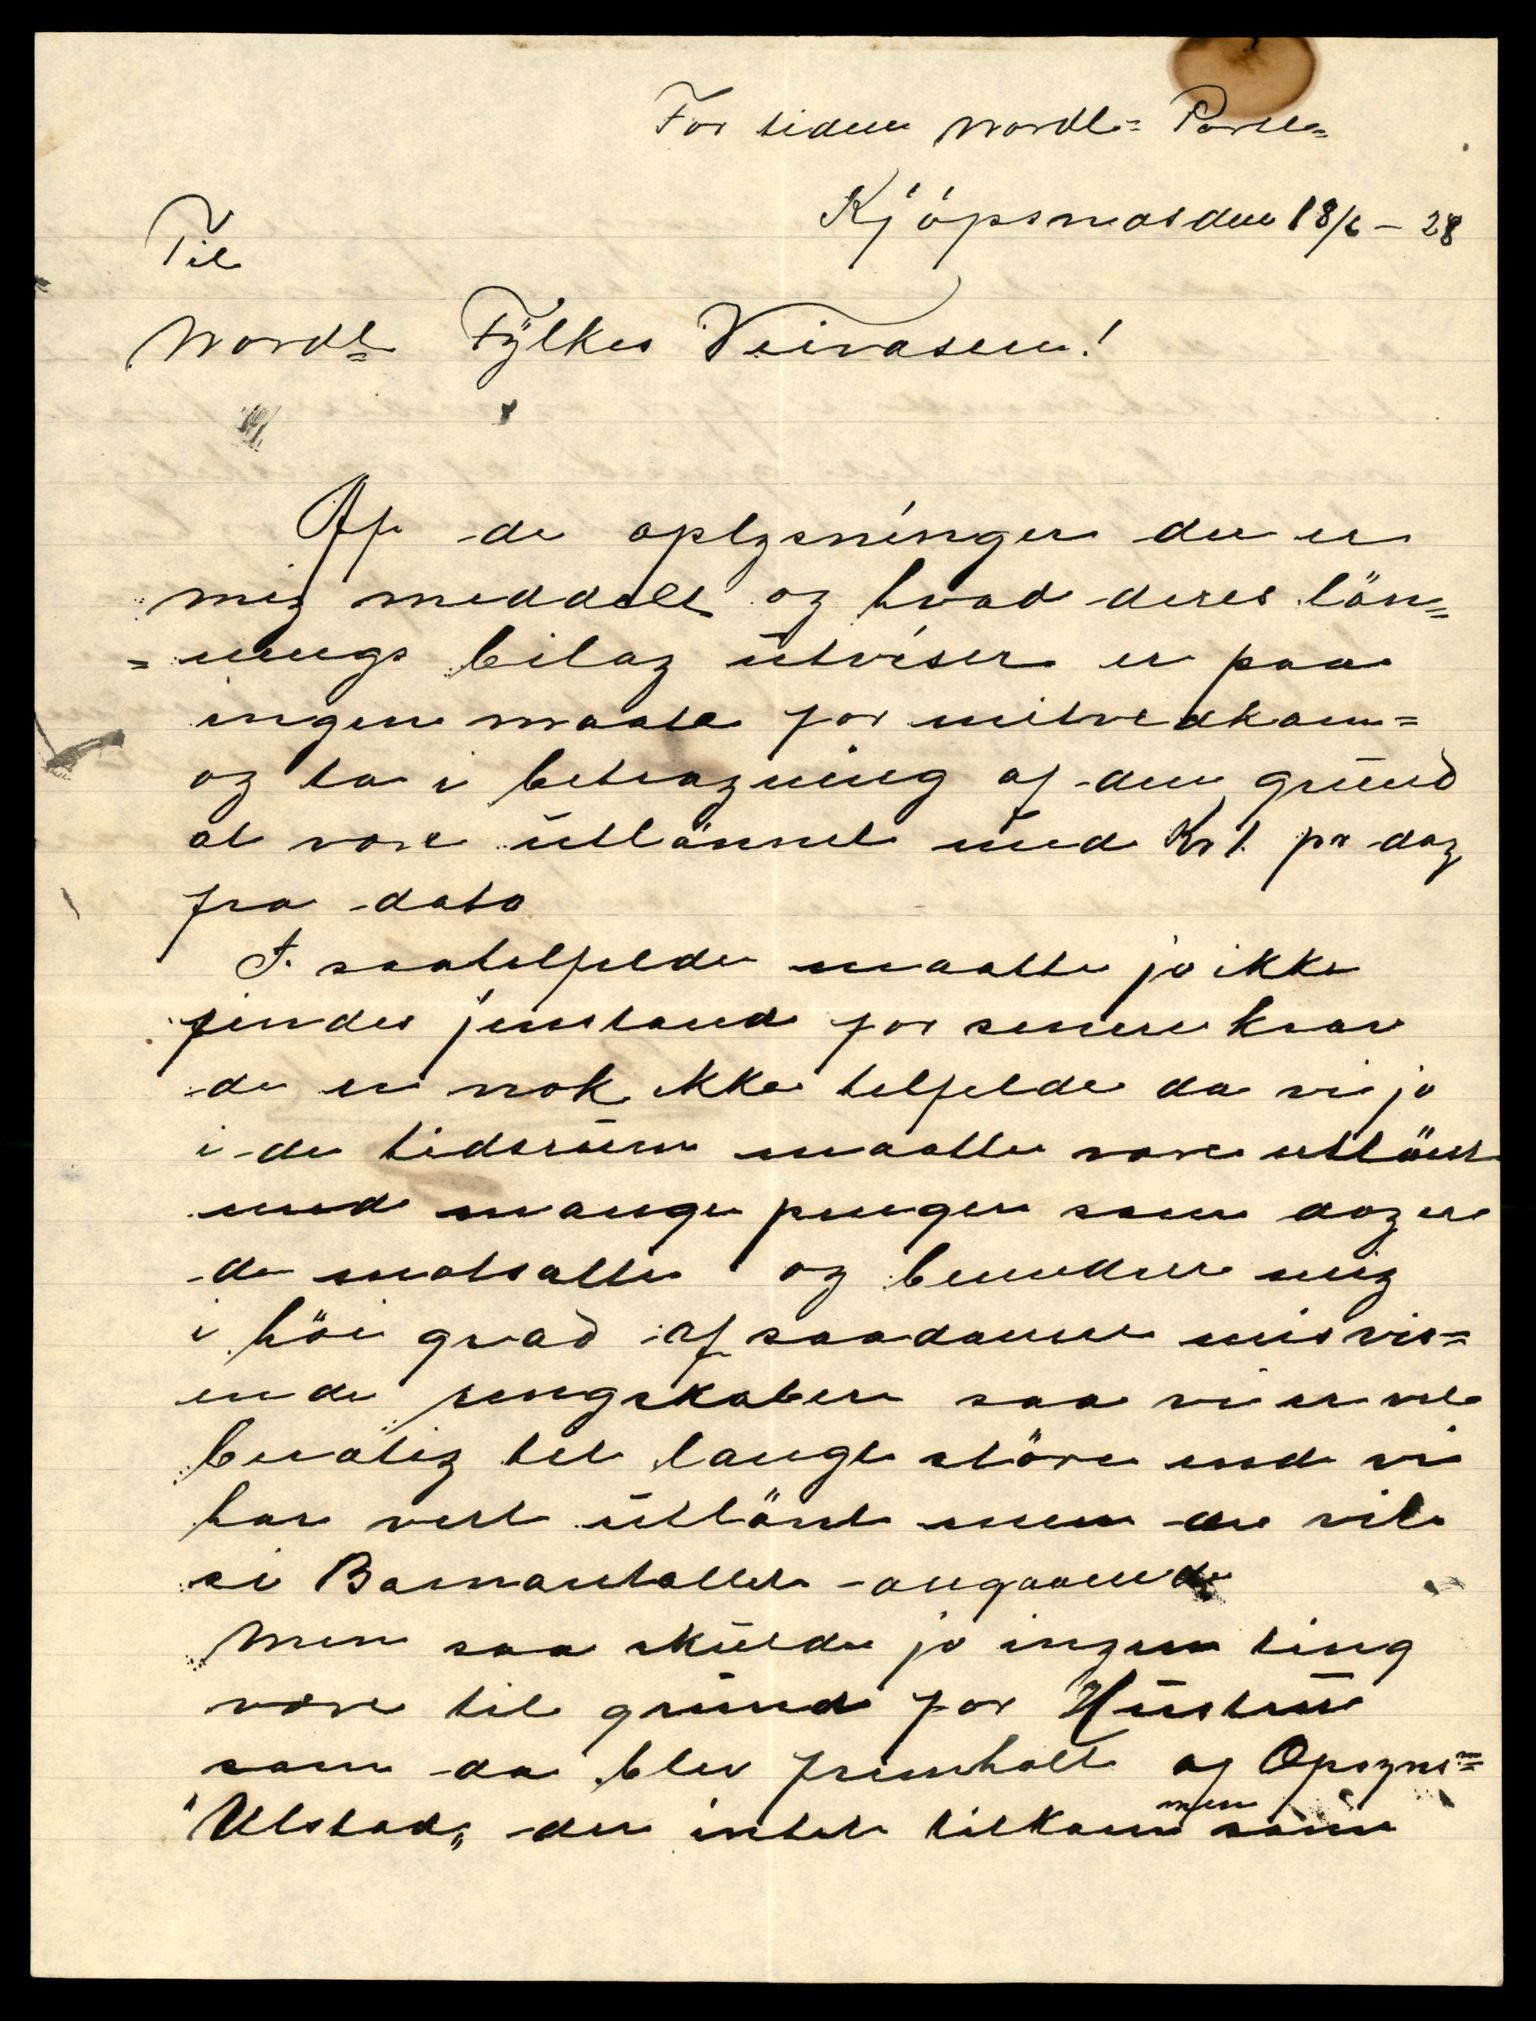 For tiden Nordl=
Kjöpsnes den 18/6 – 28
Til
Nordl= Fylkes Veivæsen!
Af de oplysninger der er
mig meddelt og hvad deres lön=
=nings bilag utviser er paa
ingen maate for mitvedkom=
og ta i betragning af den grund
at være utlönnet med Kr 1. pr dag
fra dato
I saatelfelde maatte jo ikke
findes jenstand for senere krav
de er nok ikke telfelde da vi jo
i de tidsrum maatte være utlönt
med mange penger som dog er
de motsatte og beundrer mig
i höi grad af saadanne misvis=
ende rengskaber saa vi er vel
beretig tel langt störe end vi
har vert utlönt men de vil
si Barnantallet angaaende
Men saa skulde jo ingen ting
være til grund for Hustru
som da blev fremholt af Opsyns=
"Ulstad„ der intet tilkom men som